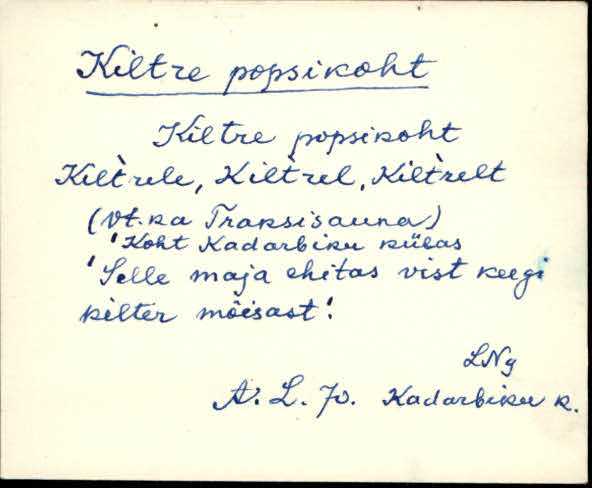 Kiltre popsikoht
Kiltre popsikoht
Kilt̀rele, Kilt̀rel, Kilt̀relt
(vt. ka Traksisauna)
'Koht Kadarbiku külas
'Selle maja ehitas vist keegi
kilter mõisast!
LNg
A. L. 70. Kadarbiku k.